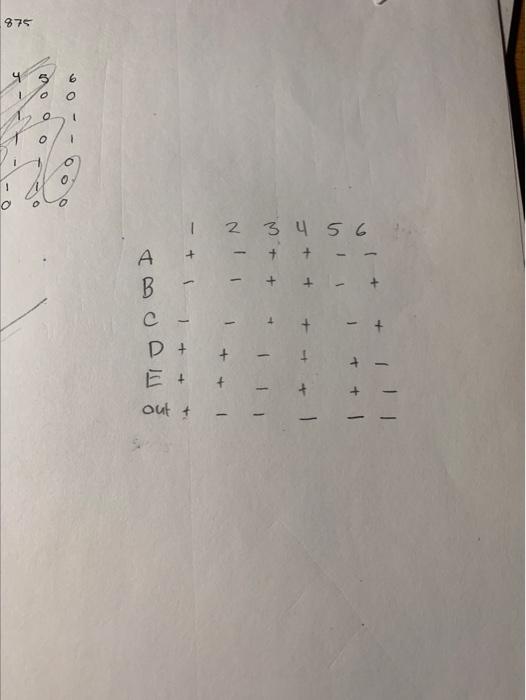 875
4 5 6
1 0 0
1 0 1
1 0 1
1 1 0
1 1 0
0 0 0
1 2 3 4 5 6
A + - + + - -
B - - + + - +
C - - + + - +
D + + - + + -
E + + - + + -
out + - - - - -